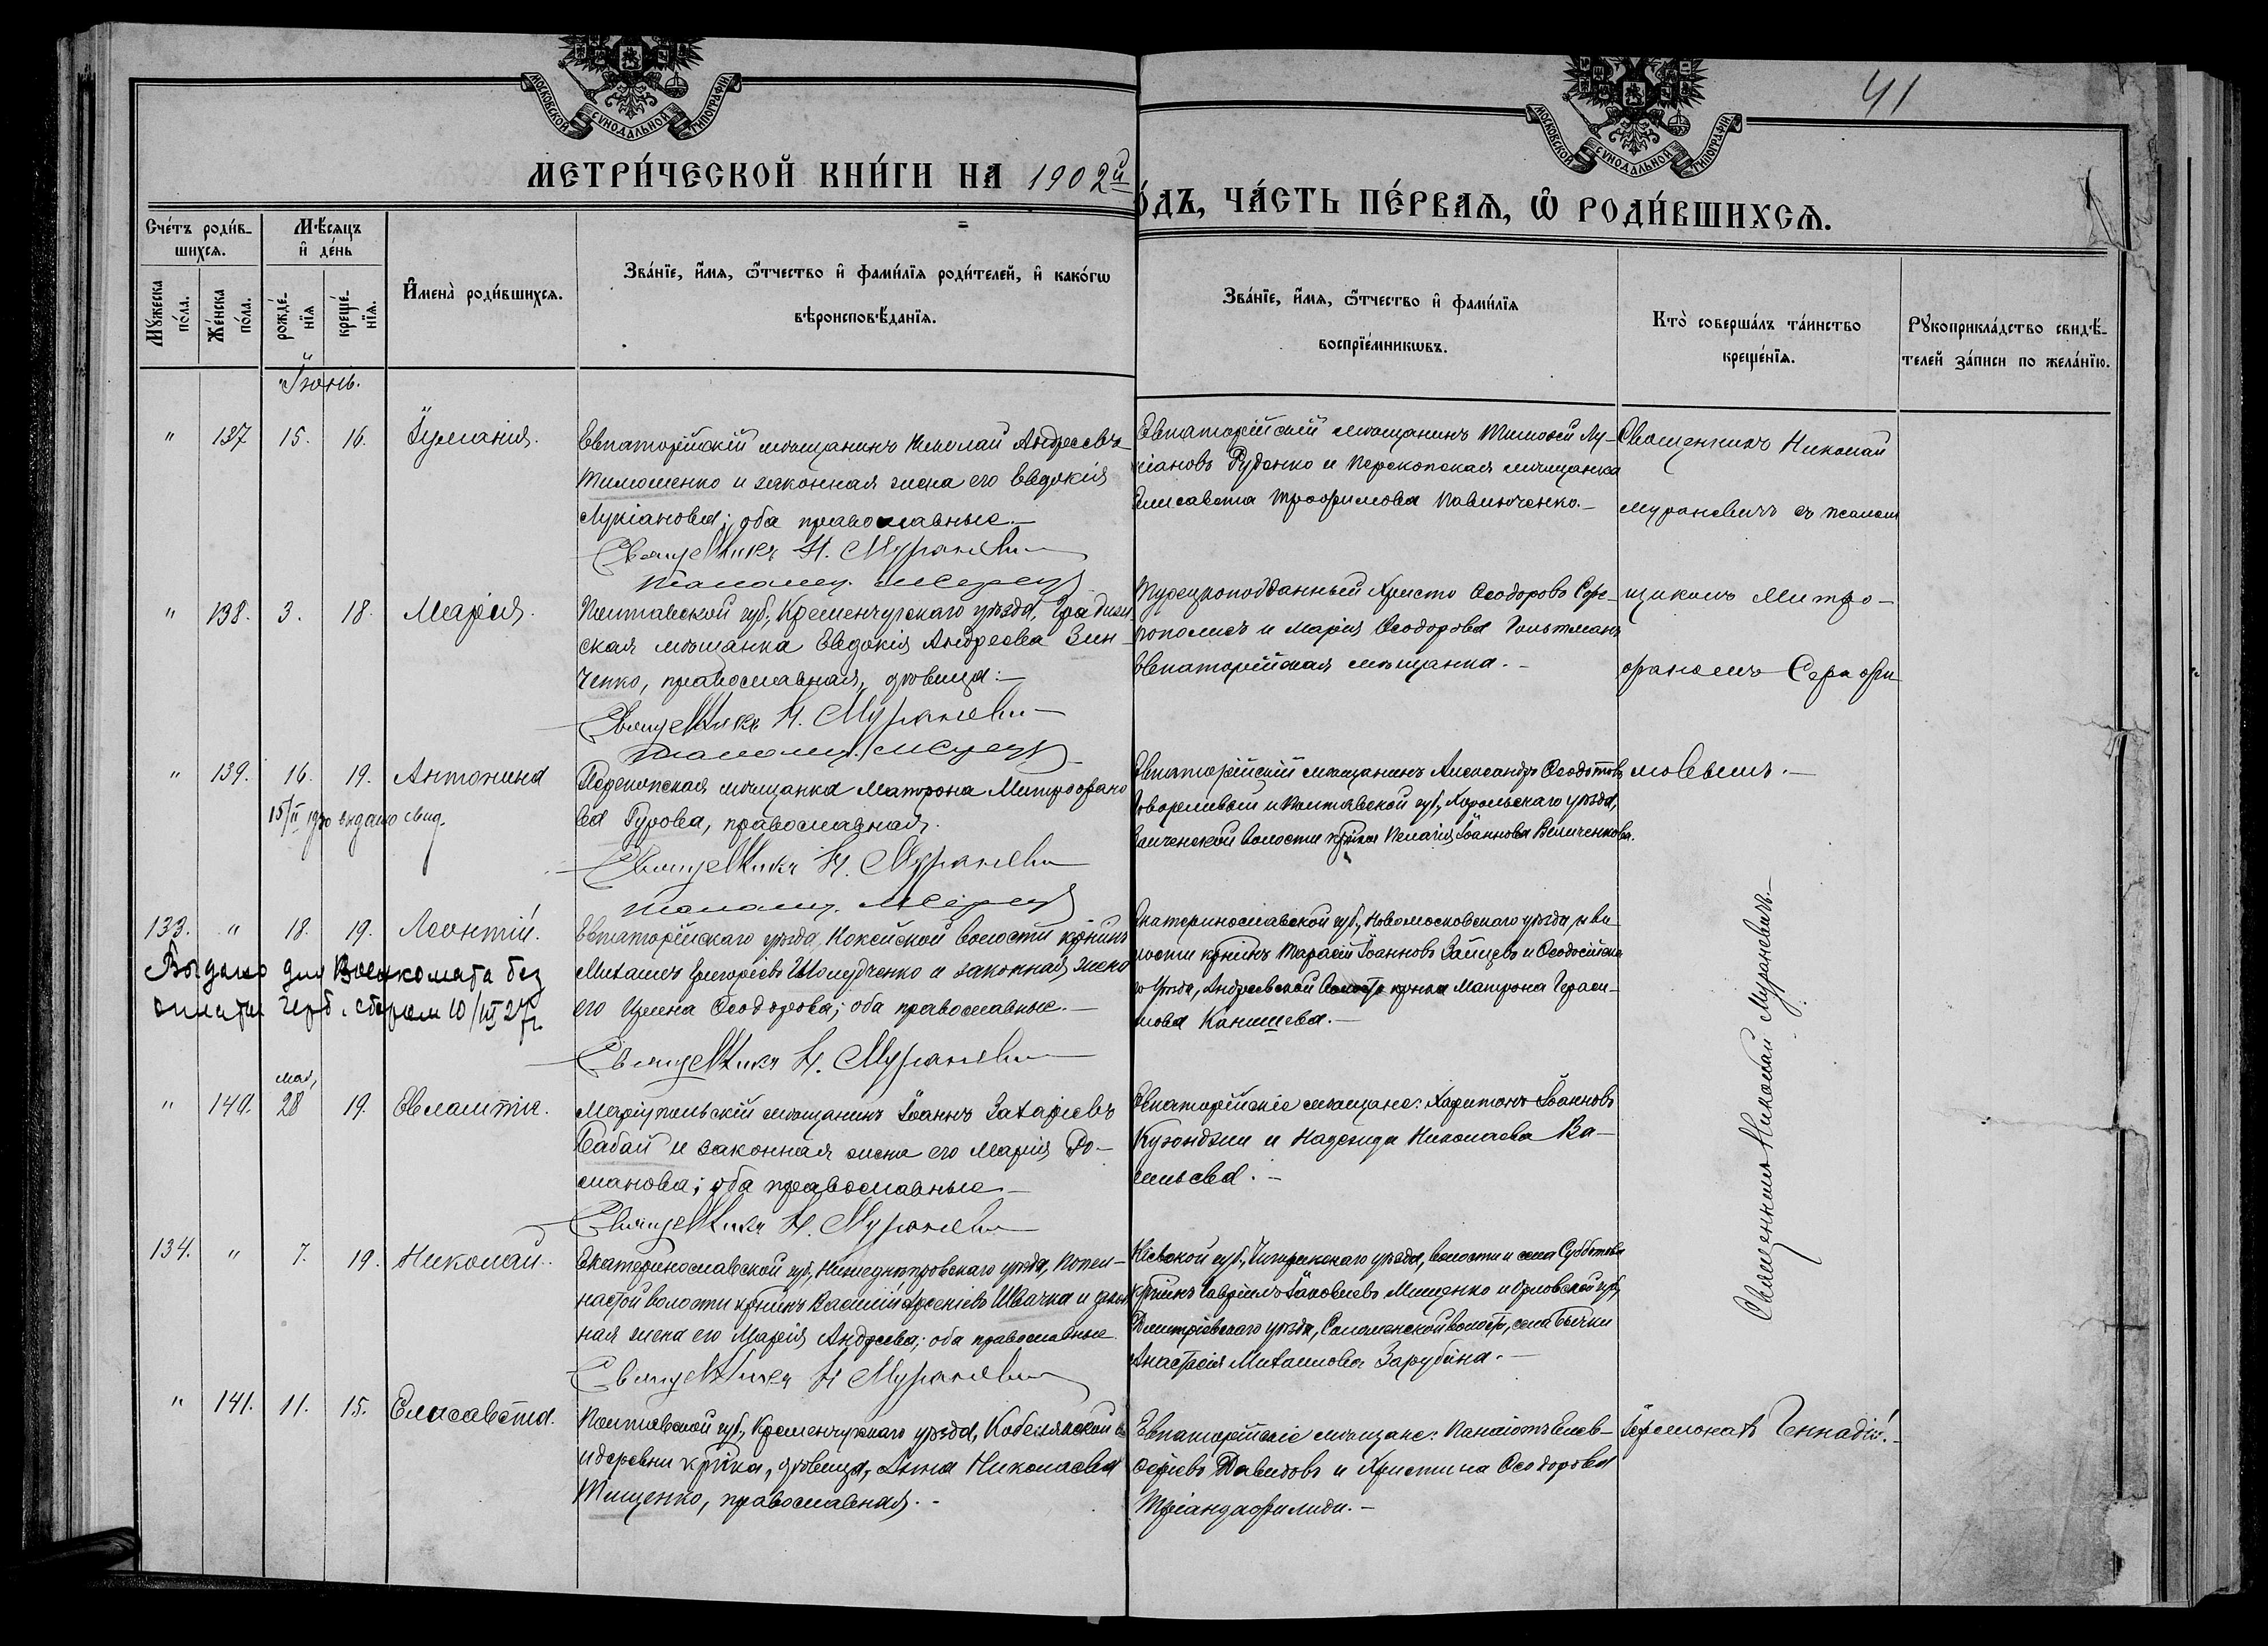 41
МОСКОВСКОЙ СѴНОДАЛЬНОЙ ТИПОГРАФІИ
МОСКОВСКОЙ СѴНОДАЛЬНОЙ ТИПОГРАФІИ
МЕТРИ́ЧЕСКОЙ КНИ́ГИ НА 1902й
О́ДЪ, ЧА́СТЬ ПЕ́РВАѦ, Ѡ҆ РОДИ́ВШИХСѦ.
Сче́тъ роди́в-
шихсѧ.
Мꙋ́жеска
по́ла.
Же́нска
по́ла.
Мѣ́сѧцъ
и҆ де́нь
рожде́-
нїѧ
креще́-
нїѧ.
И҆мена̀ роди́вшихсѧ.
Зва́нїе, и҆́мѧ, ѻ҆́тчество и҆ фами́лїѧ роди́телей, и҆ како́гѡ
вѣроисповѣ́данїѧ.
Зва́нїе, и҆́мѧ, ѻ҆́тчество и҆ фами́лїѧ
воспрїе́мникѡвъ.
Кто̀ соверша́лъ та́инство
креще́нїѧ.
Рꙋкоприкла́дство свидѣ́-
телей за́писи по жела́нїю.
Іюнь.
" 137 15. 16. Іуліанія.
Евпаторійскій мѣщанинъ Николай Андреевъ
Тимошенко и законная жена его Евдокія
Лукіанова; оба православные.—
Священникъ Н. Мураневич
Псаломщ.
Евпаторійскій мѣщанинъ Тимоѳей Лу-
кіановъ Руденко и Перекопская мѣщанка
Елисавета Трофимова Павлюченко.—
Священникъ Николай
Мураневичъ съ псалом
" 138. 3. 18. Марія.
Полтавской губ., Кременчугскаго уѣзда, Градиж
ская мѣщанка Евдокія Андреева Зин-
ченко, православная, дѣвица.—
Священникъ Н. Мураневич
Псаломщ.
Турецкоподданный Христо Ѳеодоровъ Сере-
пополисъ и Марія Ѳеодорова Гольтманъ
Евпаторійская мѣщанка.—
щикомъ Митро-
фаномъ Серафи
" 139. 16. 19. Антонина
15/II выдано свид.
Перекопская мѣщанка Матрона Митрофано
ва Гурова, православная.
Священникъ Н. Мураневич
Псаломщ.
Евпаторійскій мѣщанинъ Александръ Ѳеодотовъ
и Полтавской губ., Хорольскаго уѣзда,
волости кр-ка Пелагія Іоаннова Величенкова.
мовымъ.—
133. " 18. 19. Леонтій.
Выдано для Военкомата без
оплаты герб. сбором 10/III 27г.
Евпаторійскаго уѣзда, Коксйской волости кр-нинъ
Михаилъ Григорьевъ Шолудченко и законная жена
его Ирина Ѳеодорова; оба православные.—
Священникъ Н. Мураневич
Екатеринославской губ., Новомосковскаго уѣзда, и во
лости кр-нинъ Тарасій Іоанновъ Зайцевъ и Ѳеодосійска
го уѣзда, Андреевской волости кр-нка Матрона Гераси-
мова Канищева.—
Священникъ Николай Мураневичъ.—
мая,
" 140. 28 19. Евлампія.
Маріупольскій мѣщанинъ Іоаннъ Захаріевъ
Бабай и законная жена его Марія Ро-
манова; оба православные—
Священникъ Н. Мураневич
Евпаторійскіе мѣщане: Харитонъ Іоанновъ
Куюнджи и Надежда Николаева Ва-
сильева.—
134. " 7. 19. Николай.
Екатеринославской губ., Нижеднѣпровскаго уѣзда, Попел-
настой волости кр-нинъ Василій Арсеніевъ Швачка и закон
ная жена его Марія Андреева; оба православные
Священникъ Н Мураневич
Кіевской губ., Чигиринскаго уѣзда, волости и села Субботова
кр-нинъ Гавріилъ Іаковлевъ Мищенко и Орловской губ.,
Дмитріевскаго уѣзда, Саломенской волости, села Бычки
Анастасія Михаилова Зарубина.—
" 141. 11. 15. Елисавета.
Полтавской губ., Кременчугскаго уѣзда, Кобелякской в.
и деревни кр-нка, дѣвица, Анна Николаева
Тищенко, православная.—
Евпаторійскіе мѣщане: Панаіотъ Елев-
ѳеріевъ Давидовъ и Христина Ѳеодорова
Тріандафилиди.—
Іеромонахъ Геннадій.—